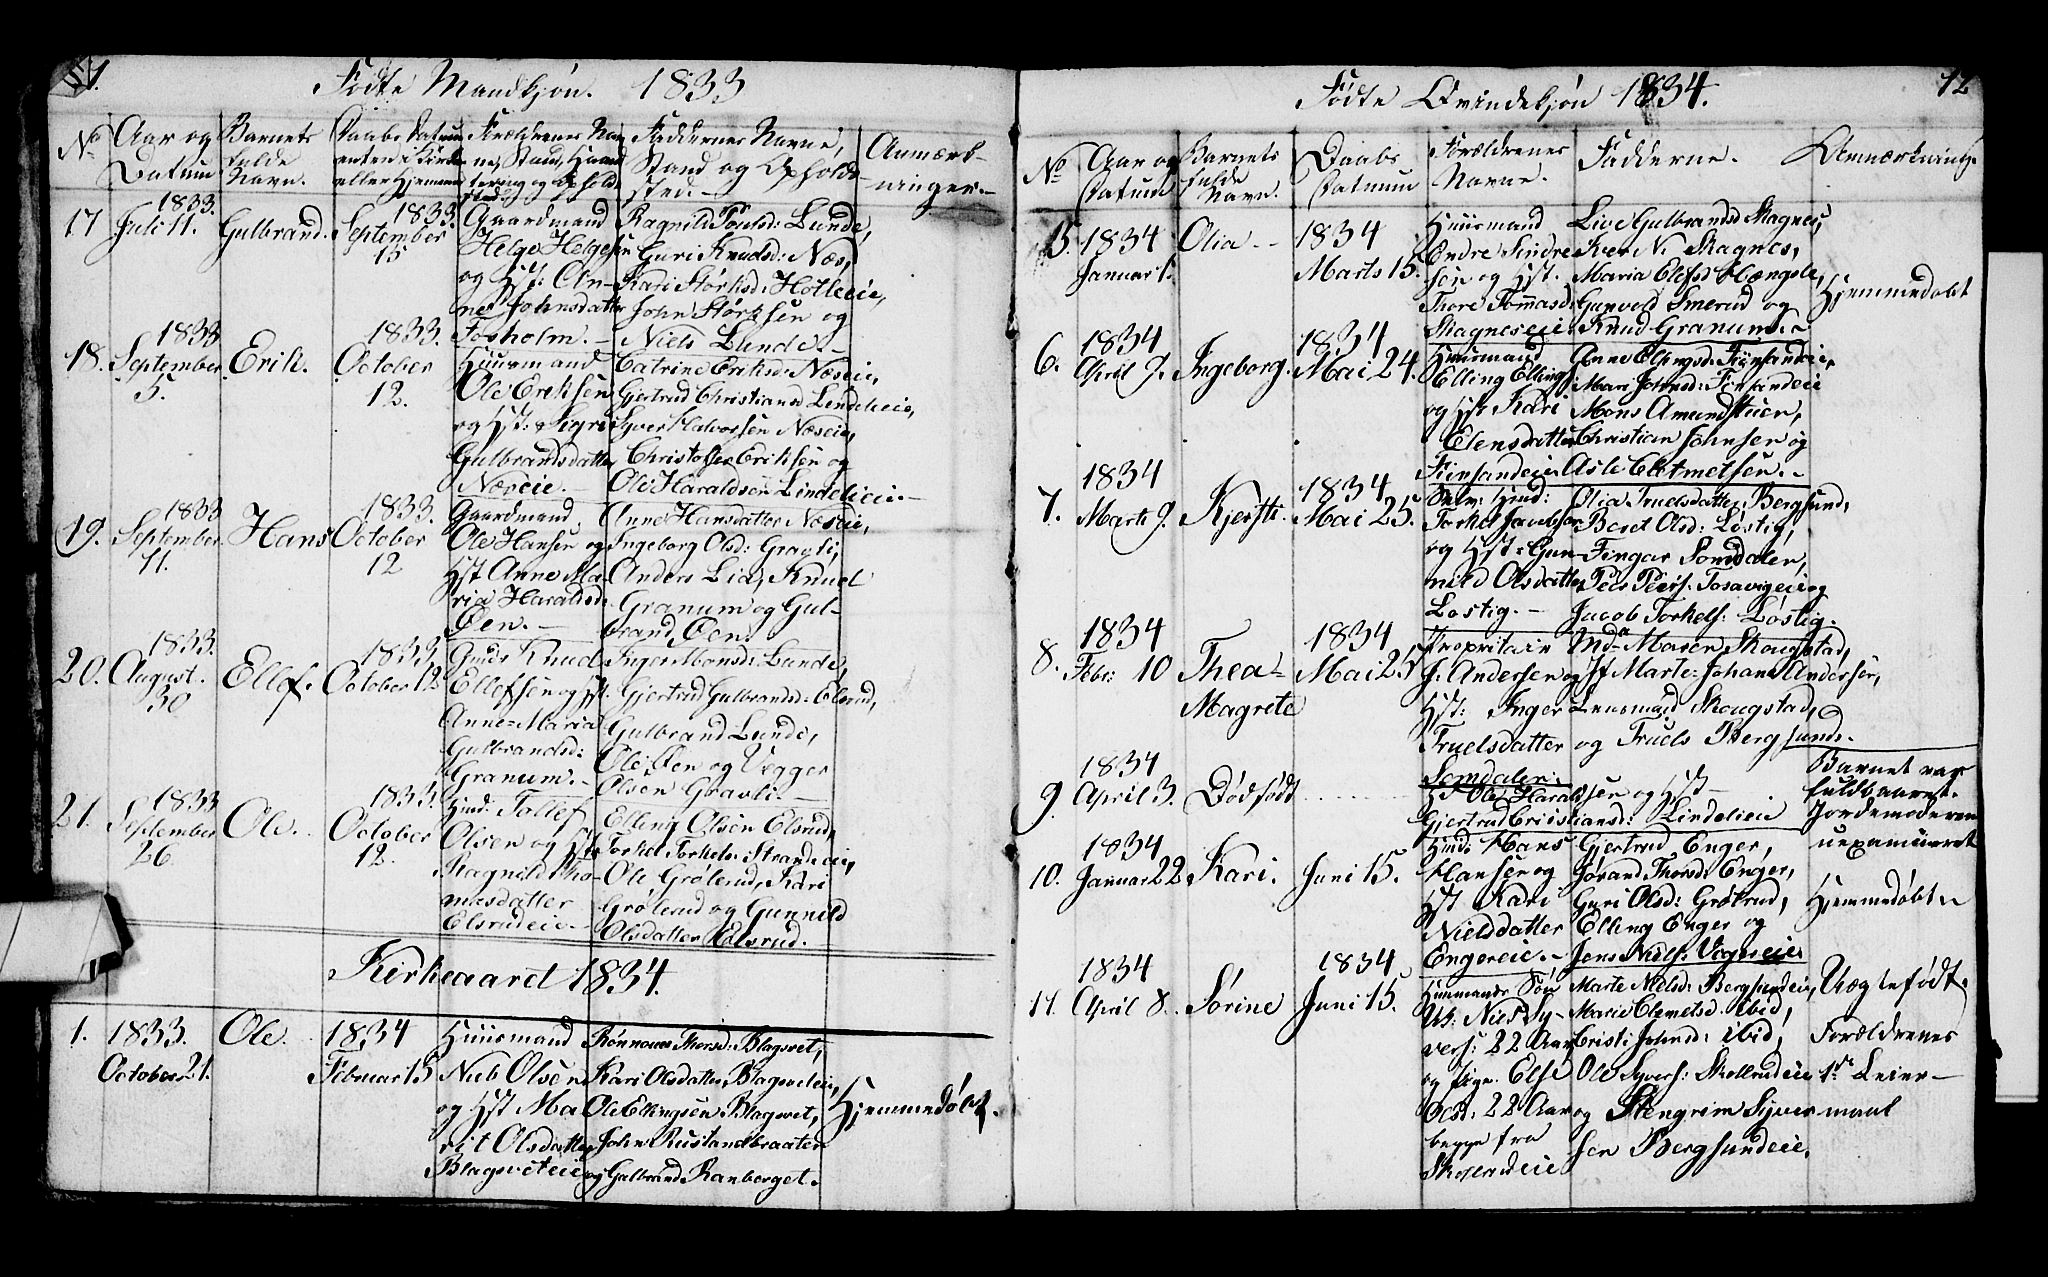 Födte Mandkjön. 1833
No
Aar og
Datum
Barnets
fulde
Navn.
Daabs Datum
enten i Kirke
eller Hjemme
Forældrenes Nav
ne, Stand, Haand
tering og Opholds
sted.
Faddernes Navne,
Stand og Opholds
sted.
Anmærk-
ninger.
17
1833.
Juli 11.
Gulbrand.
1833.
September
15
Gaardmand
Helge Helgesen
og Hst: An-
ne Johnsdatter
Forholm.
Ragnild Lunde,
Guri Knudsd: Næs,
Kari Størksd: Hotleeie,
John Størksen og
Niels Lunde.
18.
1833
September
5.
Erik.
1833.
October
12.
Huusmand
Ole Eriksen
og Hst: Sigri
Gulbrandsdatter
Næseie.
Catrine Eriksd: Næseie,
Gjertrud Christiansd Lindelieeie,
Syver Halvorsen Næseie,
Christofer Eriksen og
Ole Haraldsen Lindelieeie.
19.
1833
September
11.
Hans
1833.
October
12
Gaardmand
Ole Hansen og
Hst Anne Ma-
ria Haraldsd:
Øen.
Anne Hansdatter Næseie,
Ingeborg Olsd: Gravli,
Anders Lia, Knud
Granum og Gul-
brand Øen.
20.
1833.
August.
30
Ellef.
1833.
October 12
Gmd: Knud
Ellefsen og Hst.
Anne Maria
Gulbrandsd:
Granum.
Inger Monsd: Lunde,
Gjertrud Gulbrandsd: Elsrud,
Gulbrand Lunde,
Ole Øen og Vegger
Olsen Gravli.
21.
1833
September
26.
Ole.
1833.
October
12.
Hmd: Tollef
Olsen og Hst
Ragnild Tho-
masdatter
Elsrudeie.
Elling Olsen Elsrud,
Torkel Torkels: Strandeeie,
Ole Grøterud, Kari
Grøterud og Gunnild
Olsdatter Elsrud.
Kirkegaard 1834.
1.
1833.
October 21.
Ole.
1834
Februar 15
Huusmand
Niels Olsen
og Hst Ma-
rit Olsdatter
Blagsveteie
Rønnoug Thorsd: Blagsvet,
Kari Olsdatter Blagsveteie,
Ole Ellingsen Blagsvet,
John Rustandbraaten
og Gulbrand Ramberget.
Hjemmedöbt.
12
Födte Qvindekjön 1834.
No
Aar og
Datum
Barnets
fulde
Navn.
Daabs
Datum
Forældrenes
Navne.
Fadderne.
Anmærkning
5.
1834
Januar 1.
Olia
1834
Marts 15.
Huusmand
Endre Sindre
sen og Hst.
Thore Tomasd:
Skagneseie
Live Gulbrandsd Skagnes,
Iver N. Skagnes,
Maria Elefsd Hængsle,
Gunvold Smerud og
Knud Granum.
Hjemmedøbt
6.
1834
April 7.
Ingeborg.
1834
Mai 24.
Huusmand
Elling Ellings:
og Hst Kari
Elensdatter
Finsandeie
Anne Ellingsd: Finsandeie,
Mari Johnsd: Finsandeie
Mons Amundstuen,
Christian Johnsen og
Asle Clemetsen.
7.
1834
Marts 9.
Kjersti.
1834
Mai 25.
Selv: Hmd:
Torkel Jacobsen
og Hst: Gun-
nild Olsdatter
Løstig.
Olia Truelsdatter Bergsund,
Beret Olsd: Løstig,
Fingar Somdalen,
Peder Peders: Tosavigeie og
Jacob Torkels: Løstig.
8.
1834
Febr: 10
Thea
Magrete
1834
Mai 25
Proprietair
J. Andersen og
Hst: Inger
Truelsdatter
Somdalen.
Mda Maren Skougstad,
Jf Marte: Johan Andersen,
Lensmand Skougstad,
og Truels Bergsund.
9.
1834
April 3.
Dödfödt
Hd Ole Haraldsen og Hst
Gjertrud Cristiansd: Lindelieeie
Barnet var
fuldbaaret.
Jordemoderen
uexamineret
10.
1834
Januar 22
Kari.
Juni 15.
Hmd: Hans
Hansen og
Hst Kari
Nielsdatter
Engereie.
Gjertrud Enger,
Jørand Thorsd: Enger,
Guri Olsd: Grøtrud,
Elling Enger og
Jens Niels: Vageseie
Hjemmedöbt
11.
1834
April 8.
Sörine
1834
Juni 15.
Huusmands Søn
Uk: Niels Sy-
vers: 22 Aar
og pige. Else
Olsd: 22 Aar
begge fra
Skollerudeie
Marte Nielsd: Bergsundeie,
Marie Clemetsd ibid,
Cristi Johnsd: ibid,
Ole Syvers: Skollerudeie
og Stengrim Syver
sen Bergsundeie.
Uægtefødt.
Forældrenes
1ste Leier-
maal